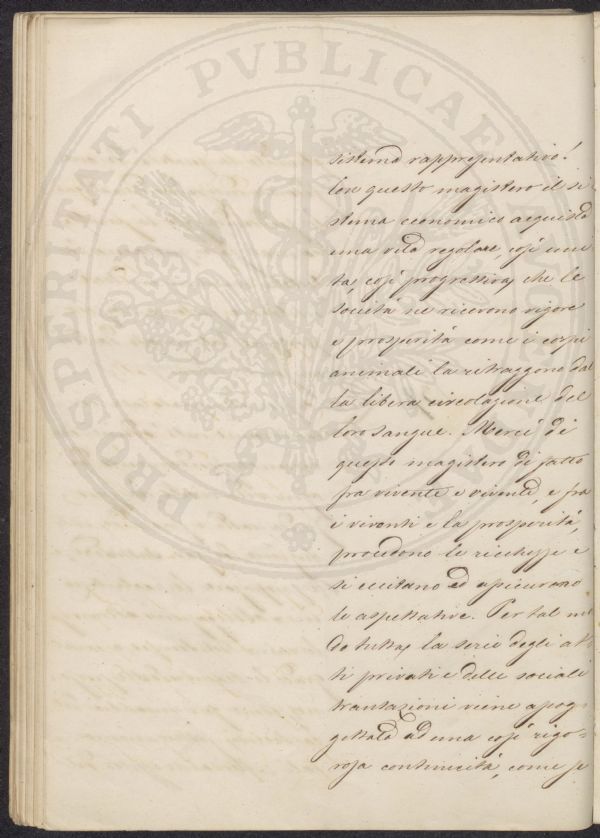 PROSPERITATI PVBLICAE AVGENDAE
sistema rappresentativo!
Con questo magistero il si-
stema economico acquista
una vita regolare, così uni
ta, così progressiva, che le
società ne ricevono vigore
e prosperità come i corpi
animali la ritraggono dal
la libera circolazione del
loro sangue. Mercè di
questo magistero di fatto
fra vivente e vivente, e fra
i viventi e la prosperità,
procedono le ricchezze e
si eccitano ed assicurano
le aspettative. Per tal mo
do tutta la serie degli at
ti privati e delle sociali
transazioni viene assog
gettata ad una così rigo=
rosa continuità, come se